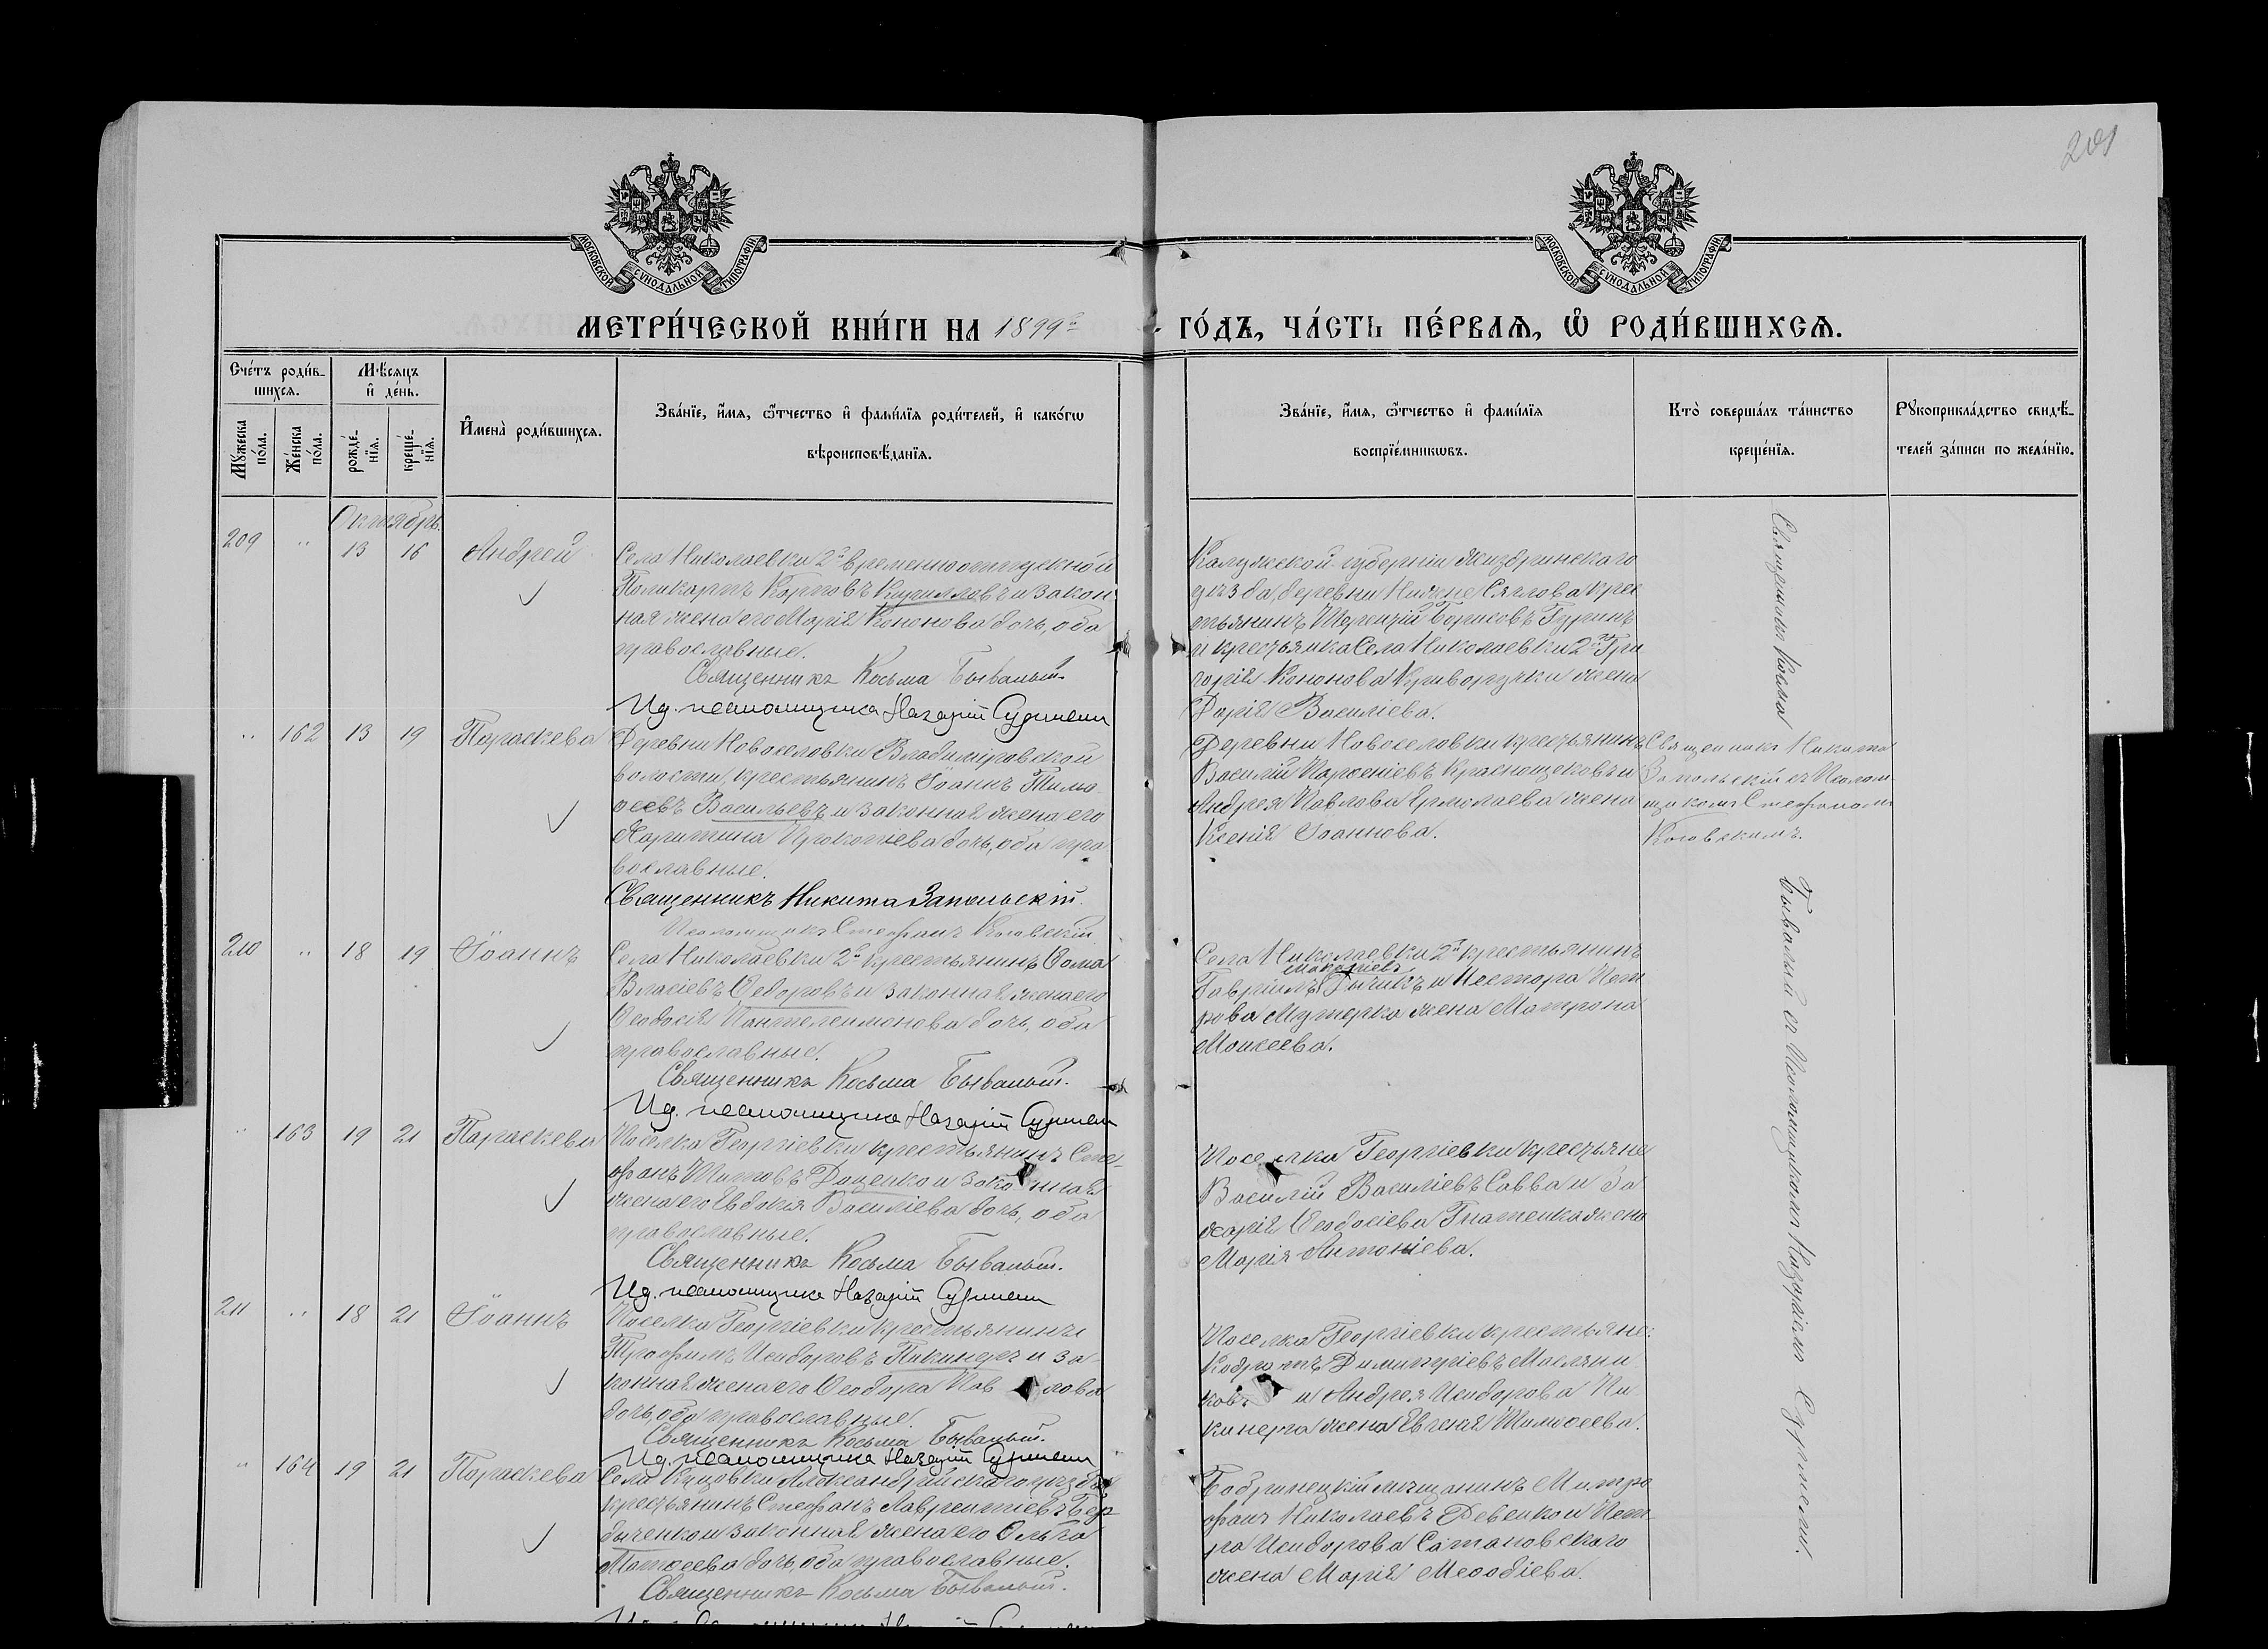 201
МОСКОВСКОЙ СѴНОДАЛЬНОЙ ТИПОГРАФІИ
МОСКОВСКОЙ СѴНОДАЛЬНОЙ ТИПОГРАФІИ
МЕТРИ́ЧЕСКОЙ КНИ́ГИ НА 1899й ГО́ДЪ, ЧА́СТЬ ПЕ́РВАѦ, Ѡ҆ РОДИ́ВШИХСѦ.
Сче́тъ роди́в-
шихсѧ.
Мѣ́сѧцъ
и҆ де́нь.
Мꙋ́жеска
по́ла.
Же́нска
по́ла.
рожде́-
нїѧ.
креще́-
нїѧ.
И҆мена̀ роди́вшихсѧ.
Зва́нїе, и҆́мѧ, ѻ҆́тчество и҆ фами́лїѧ роди́телей, и҆ како́гѡ
вѣроисповѣ́данїѧ.
Зва́нїе, и҆́мѧ, ѻ҆́тчество и҆ фами́лїѧ
воспрїе́мникѡвъ.
Кто̀ соверша́лъ та́инство
креще́нїѧ.
Рꙋкоприкла́дство свидѣ́-
телей за́писи по жела́нїю.
Октябрь.
209 " 13 16 Андрей
Села Николаевки 2й временноотпускной
Поликарпъ Карповъ Кирилловъ и закон
ная жена его Марія Кононова дочь, оба
православные.
Священникъ Косьма Бывалый.
Ид. псаломщика Назарій
Калужской губерніи Жиздринскаго
уѣзда, деревни крес
тьянинъ Борисовъ
и крестьянка Села Николаевки 2й Гри
горія Кононова Криворучки жена
Дарія Василіева.
" 162 13 19 Параскева
Деревни Новоселовки Владиміровской
волости, крестьянинъ Іоаннъ Тимо
ѳеевъ Васильевъ и законная жена его
Харитина Прокопіева дочь, оба пра
вославные.
Священникъ Никита Запольскій.
Псаломщикъ Стефанъ
Деревни Новоселовки крестьянинъ
Василій Парѳеніевъ Краснощековъ и
Андрея Павлова Ермолаева жена
Ксенія Іоаннова.
Священникъ Никита
Запольскій съ Псалом
щикомъ Стефаномъ
210 " 18 19 Іоаннъ
Села Николаевки 2й крестьянинъ Ѳома
Власіевъ Ѳедоровъ и законная жена его
Ѳеодосія Пантелеимонова дочь, оба
православные.
Священникъ Косьма Бывалый.
Ид. псаломщика Назарій
Села Николаевки 2й крестьянинъ
Гавріилъ и Нестора Пет
рова жена Матрона
Моисеева.
" 163 19 21 Параскева
Поселка Георгіевки крестьянинъ Сте-
фанъ Титовъ Доценко и законная
жена его Евдокія Василіева дочь, оба
православные.
Священникъ Косьма Бывалый.
Ид. псаломщика Назарій
Поселка Георгіевки крестьяне
Василій Василіевъ Савва и За
харія Ѳеодосіева Гнатенка жена
Марія Антоніева.
211 " 18 21 Іоаннъ
Поселка Георгіевки крестьянинъ
Трофимъ Исидоровъ Пикинеръ и за-
конная жена его Ѳеодора Павлова
дочь, оба православные.
Священникъ Косьма Бывалый.
Ид. псаломщика Назарій
Поселка Георгіевки крестьяне:
Кодратъ Димитріевъ Маслени
ковъ и Андрея Исидорова Пи
кинера жена Евгенія Тимоѳеева.
" 164 19 21 Параскева
Села Куцовки Александрійскаго уѣзда
крестьянинъ Стефанъ Лаврентіевъ Бер
дыченко и законная жена его Ольга
Матѳеева дочь, оба православные.
Священникъ Косьма Бывалый.
Бобринецкій мѣщанинъ Митро
фанъ Николаевъ Ревенко и Пет
ра Исидорова Сатановскаго
жена Марія Меѳодіева.
Священникъ Косьма
Бывалый съ Псаломщикомъ Назаріемъ